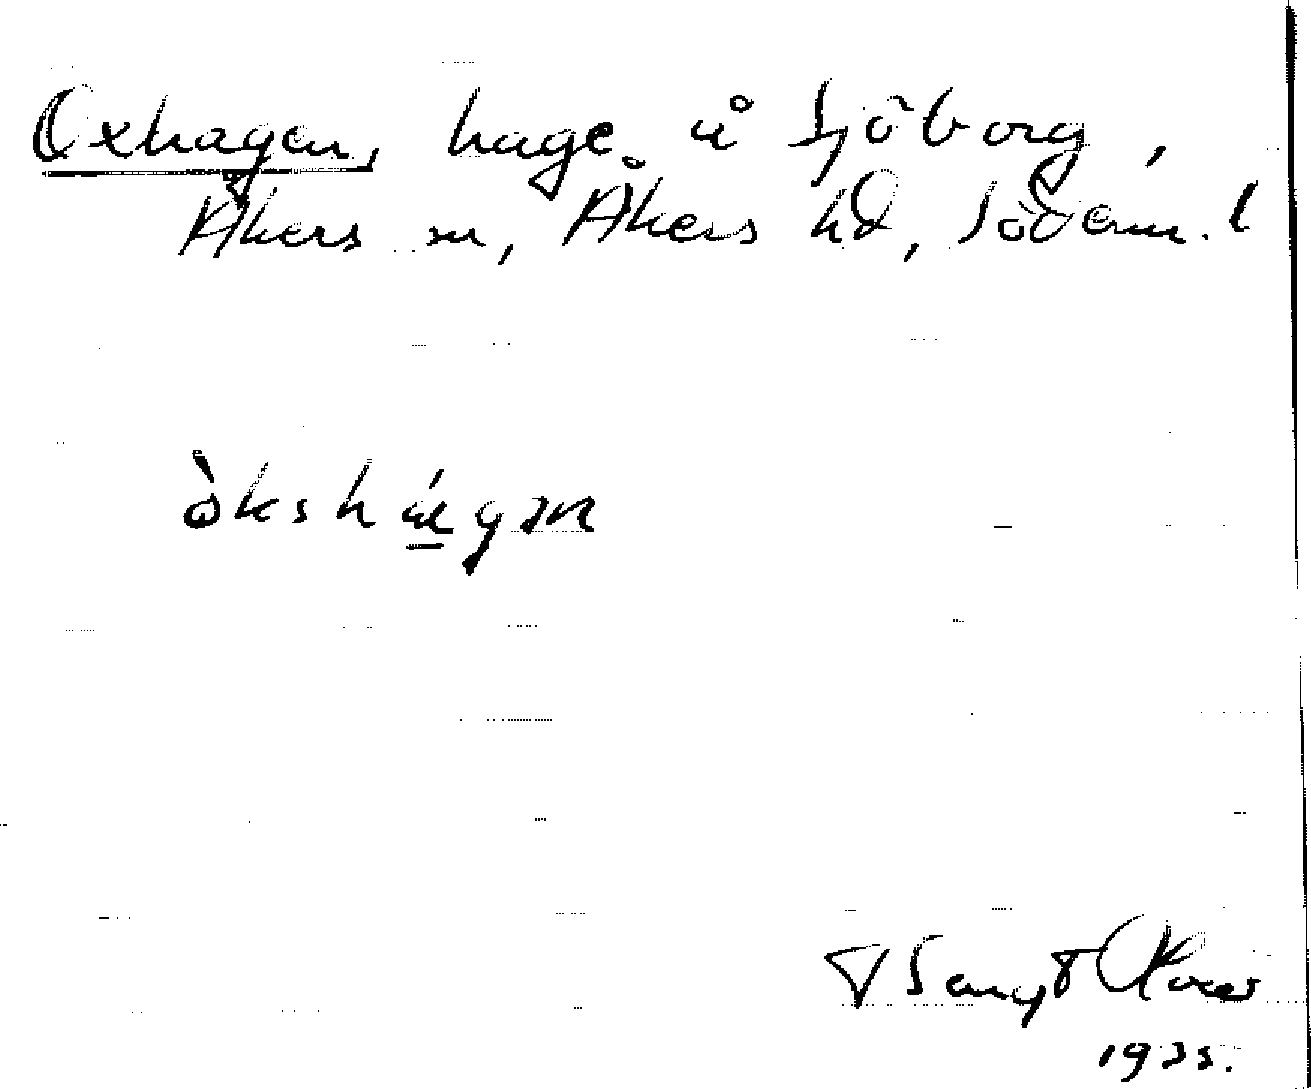 Oxhagen, hage å Sjöborg,
Åkers sn, Åkers hd, Söderm. l
òkshágən
1935.